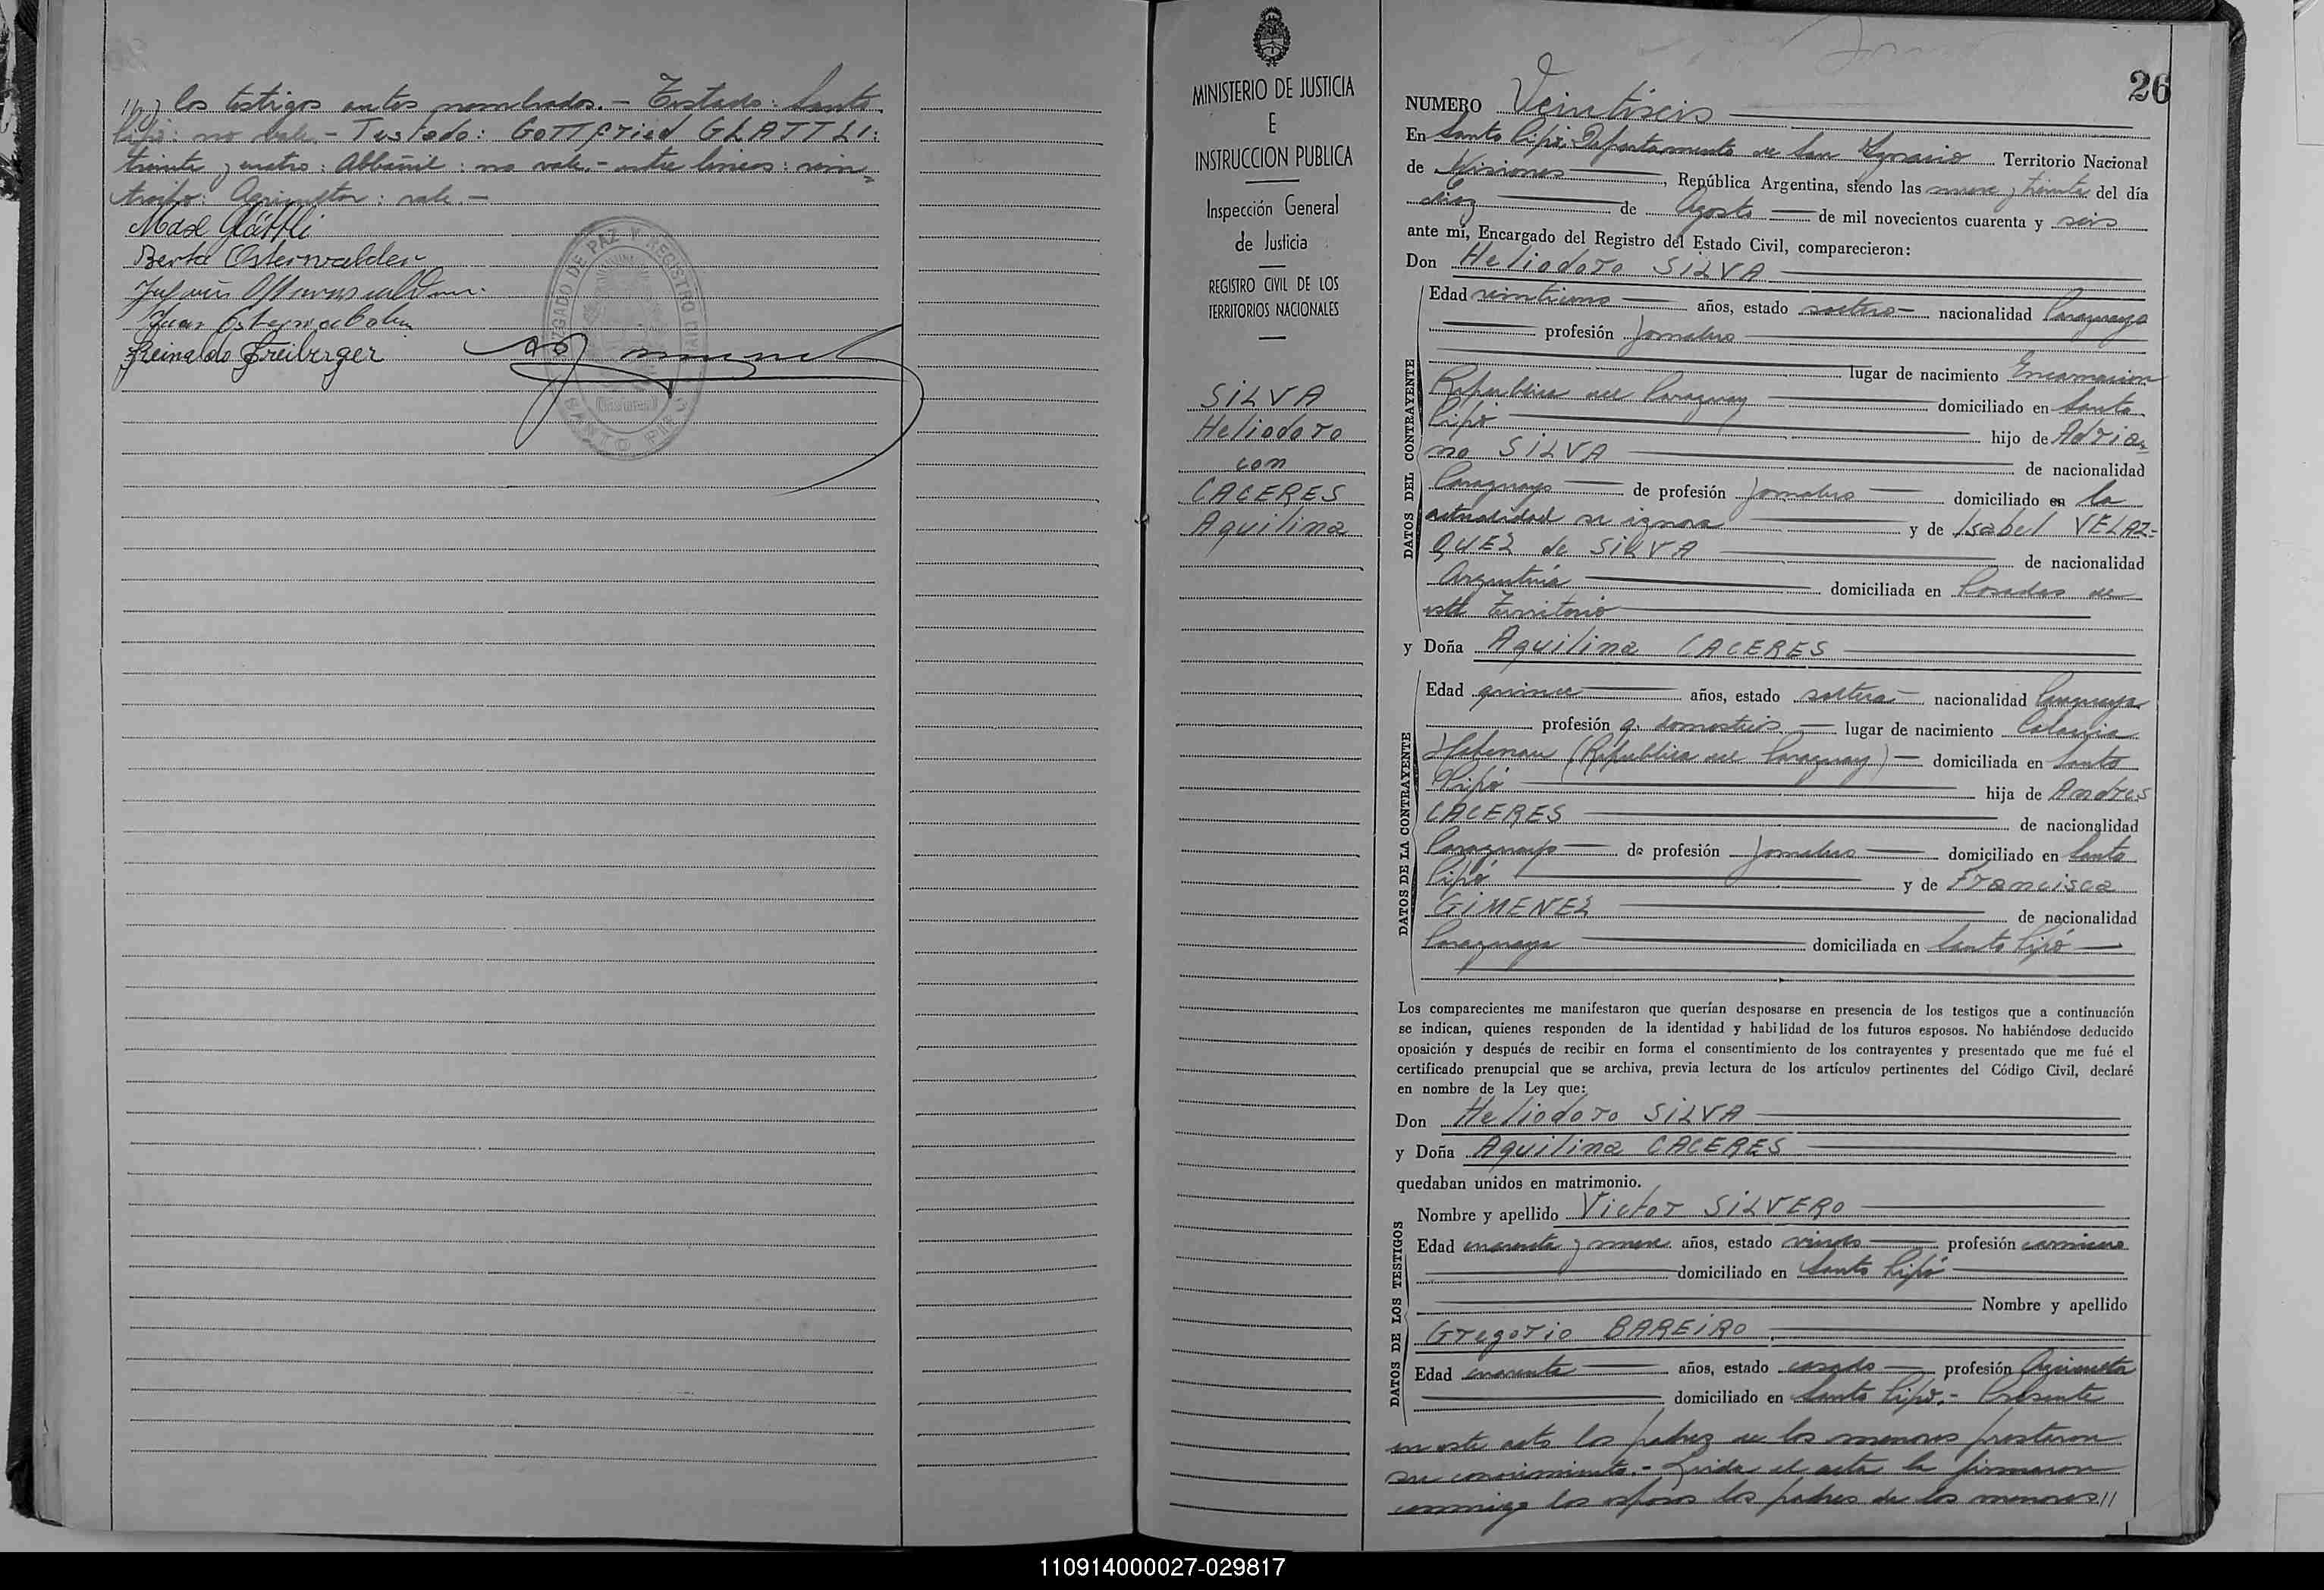 //y los testigos antes nombrados.- Testado: Santo
Pipó: no vale.- Testado: GOTTfried GLATTLI:
treinta y cuatro: Albañil: no vale.- entre lineas: vein=
Agricultor: vale.-
Max Glättli
Berta Osterwalder
Juan
Reinaldo Freiberger
JUZGADO DE PAZ Y REGISTRO
SANTO PIPÓ
(Misiones)
MINISTERIO DE JUSTICIA
E
INSTRUCCION PUBLICA
Inspección General
de Justicia
REGISTRO CIVIL DE LOS
TERRITORIOS NACIONALES
SILVA
Heliodoro
con
CACERES
Aquilina
26
NUMERO Veintiseis
En Santo Pipó, Departamento de San Ignacio Territorio Nacional
de Misiones, República Argentina, siendo las nueve y treinta del día
diez de Agosto de mil novecientos cuarenta y seis
ante mí, Encargado del Registro del Estado Civil, comparecieron:
Don Heliodoro SILVA
DATOS DEL CONTRAYENTE
Edad veintiuno años, estado soltero nacionalidad Paraguayo
profesión Jornalero
lugar de nacimiento Encarnacion
Republica del Paraguay domiciliado en Santo
Pipó hijo de Adria=
no SILVA de nacionalidad
Paraguayo de profesión Jornalero domiciliado en la
actualidad se ignora y de Isabel VELAZ=
QUEZ de SILVA de nacionalidad
Argentina domiciliada en Posadas de
este Territorio
y Doña Aquilina CACERES
DATOS DE LA CONTRAYENTE
Edad quince años, estado soltera nacionalidad Paraguaya
profesión q. domesticos lugar de nacimiento Colonia
Hohenau (Republica del Paraguay) domiciliada en Santo
Pipó hija de Andres
CACERES de nacionalidad
Paraguayo de profesión Jornalero domiciliado en Santo
Pipó y de Francisca
GIMENEZ de nacionalidad
Paraguaya domiciliada en Santo Pipó
Los comparecientes me manifestaron que querían desposarse en presencia de los testigos que a continuación
se indican, quienes responden de la identidad y habilidad de los futuros esposos. No habiéndose deducido
oposición y después de recibir en forma el consentimiento de los contrayentes y presentado que me fué el
certificado prenupcial que se archiva, previa lectura de los artículos pertinentes del Código Civil, declaré
en nombre de la Ley que:
Don Heliodoro SILVA
y Doña Aquilina CACERES
quedaban unidos en matrimonio.
DATOS DE LOS TESTIGOS
Nombre y apellido Victor SILVERO
Edad cuarenta y nueve años, estado viudo profesión carnicero
domiciliado en Santo Pipó
Nombre y apellido
Gregorio BAREIRO
Edad cuarenta años, estado casado profesión Agricultor
domiciliado en Santo Pipó.- Presente
en este acto los padres de los menores prestaron
su consentimiento.- Leida el acta la firmaron
conmigo los esposos los padres de los menores//
110914000027-029817